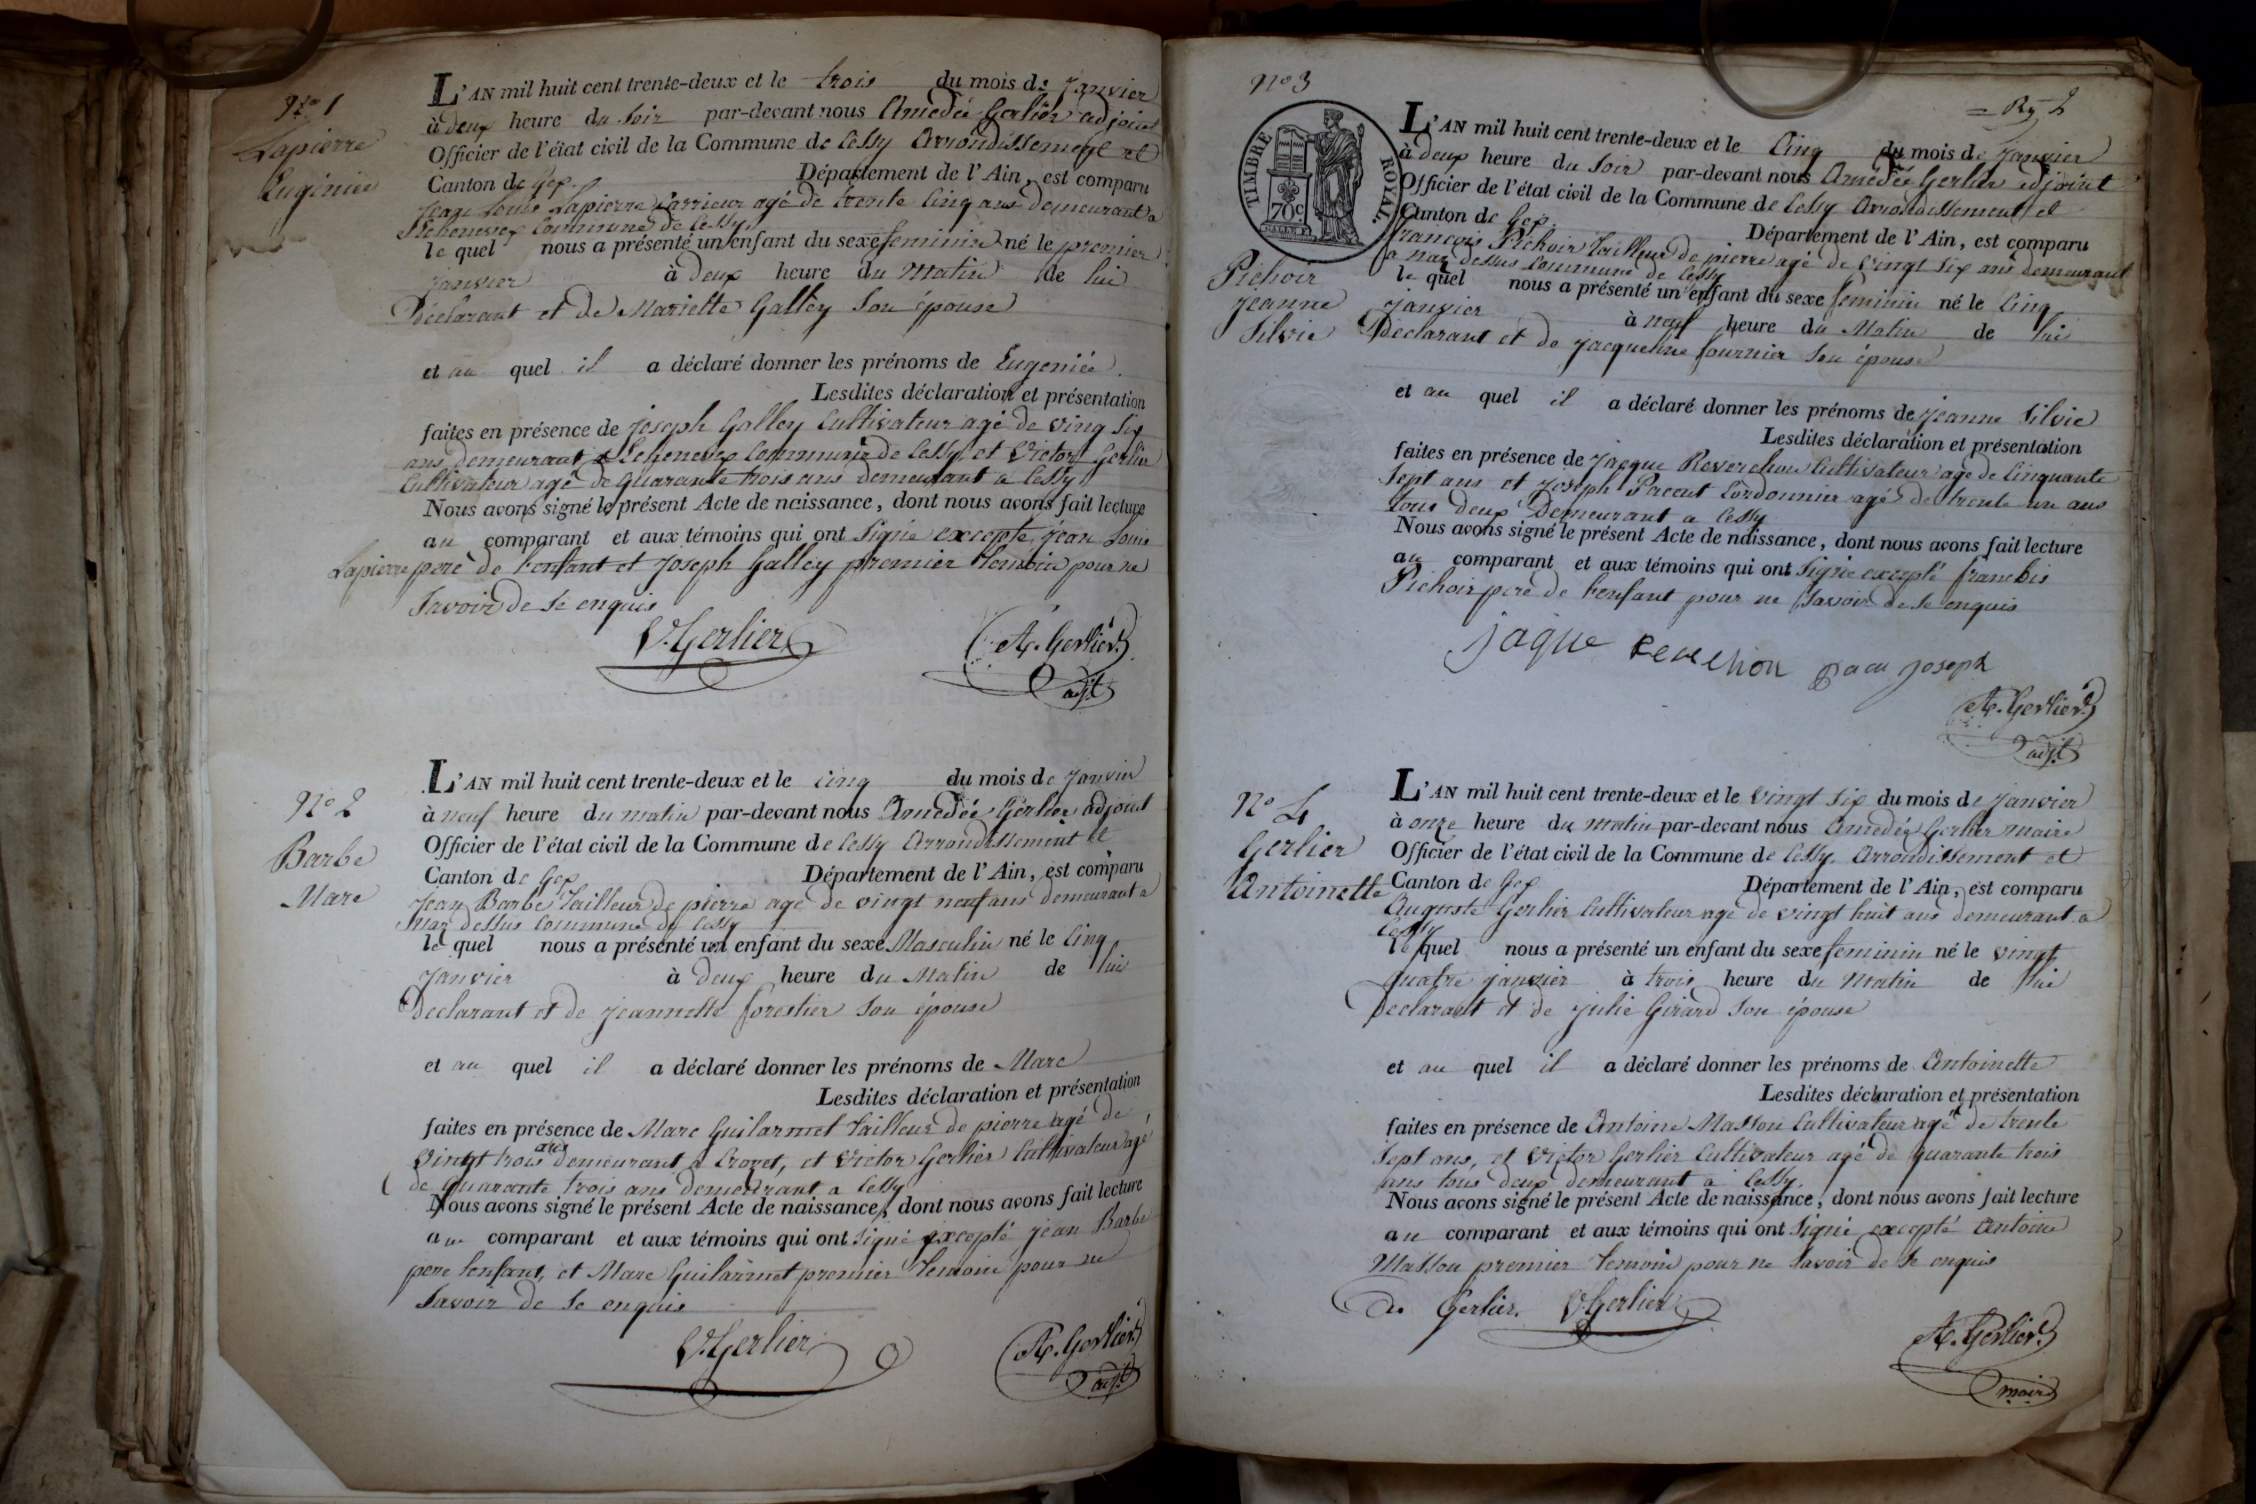 No 1
Lapierre
Eugénie
L'AN mil huit cent trente-deux et le trois du mois de Janvier
à deux heure du soir par-devant nous Amédée Gerlier adjoint
Officier de l'état civil de la Commune de Cessy Arrondissement et
Canton de Gex. Département de l'Ain, est comparu
Jean Louis Lapierre Carrieur agé de trente Cinq ans demeurant a
Echenevex Commune de Cessy
le quel nous a présenté un enfant du sexe feminin né le premier
janvier à deux heure du Matin de lui
Déclarant et de Mariette Galley Son épouse
et au quel il a déclaré donner les prénoms de Eugeniée.
Lesdites déclaration et présentation
faites en présence de Joseph Galley Cultivateur agé de ving Six
ans demeurant a Echenevex Commune de Cessy et Victor Gerlier
Cultivateur agé de quarante trois ans demeurant a Cessy
Nous avons signé le présent Acte de naissance, dont nous avons fait lecture
au comparant et aux témoins qui ont Signé excepté jean Louis
Lapierre peré de l'enfant et Joseph Galley premier temoin pour ne
Savoir de Se enquis
V. Gerlier
A. Gerlier
adjt
No 2
Barbe
Marc
L'AN mil huit cent trente-deux et le cinq du mois de Janvier
à neuf heure du matin par-devant nous Amédée Gerlier adjoint
Officier de l'état civil de la Commune de Cessy Arrondissement et
Canton de Gex Département de l'Ain, est comparu
Jean Barbe Tailleur de pierre agé de vingt neuf ans demeurant a
Naz dessus Commune de Cessy
le quel nous a présenté un enfant du sexe Masculin né le Cinq
Janvier à deux heure du Matin de lui
Declarant et de Jeannette forestier Son épouse
et au quel il a déclaré donner les prénoms de Marc
Lesdites déclaration et présentation
faites en présence de Marc Guilarmet tailleur de pierre agé de
vingt trois ans demeurant a Crozet, et Victor Gerlier Cultivateur agé
de quarante trois ans demeurant a Cessy
Nous avons signé le présent Acte de naissance, dont nous avons fait lecture
au comparant et aux témoins qui ont Signé excepté jean Barbe
pere l'enfant, et Marc Guilarmet premier temoin pour ne
Savoir de Se enquis
V. Gerlier
A. Gerlier
adjt
No 3
TIMBRE ROYAL.
70c.
Pichoir
Jeanne
Silvie
L'AN mil huit cent trente-deux et le Cinq du mois de Janvier
à deux heure du Soir par-devant nous Amédée Gerlier adjoint
Officier de l'état civil de la Commune de Cessy Arrondissement et
Canton de Gex. Département de l'Ain, est comparu
francois Pichoir Tailleur de pierre agé de Vingt Six ans demeurant
a naz dessus Commune de Cessy
le quel nous a présenté un enfant du sexe feminin né le Cinq
janvier à neuf heure du Matin de lui
Declarant et de jacqueline fournier Son épouse
et au quel il a déclaré donner les prénoms de jeanne Silvie
Lesdites déclaration et présentation
faites en présence de Jacque Reverchon Cultivateur agé de Cinquante
Sept ans et Joseph Pacent Cordonnier agé de trente un ans
tous deux Demeurant a Cessy
Nous avons signé le présent Acte de naissance, dont nous avons fait lecture
au comparant et aux témoins qui ont Signé excepté francois
Pichoir peré de l'enfant pour ne Savoir de Se enquis
jaque reverchon joseph
A. Gerlier
adjt
No 4
Gerlier
Antoinette
L'AN mil huit cent trente-deux et le vingt Six du mois de janvier
à onze heure du matin par-devant nous Amedée Gerlier maire
Officier de l'état civil de la Commune de Cessy. Arrondissement et
Canton de Gex Département de l'Ain, est comparu
Auguste Gerlier Cultivateur agé de vingt huit ans demeurant a
Cessy
le quel nous a présenté un enfant du sexe feminin né le vingt
quatre janvier à trois heure du Matin de lui
Declarant et de julie Girard Son épouse
et au quel il a déclaré donner les prénoms de Antoinette
Lesdites déclaration et présentation
faites en présence de Antoine Masson Cultivateur agé de trente
Sept ans, et Victor Gerlier Cultivateur agé de quarante trois
ans tous deux demeurant a Cessy.
Nous avons signé le présent Acte de naissance, dont nous avons fait lecture
au comparant et aux témoins qui ont Signé excepté Antoine
Masson premier temoin pour ne Savoir de Se enquis
Gerlier. V. Gerlier
A. Gerlier
maire